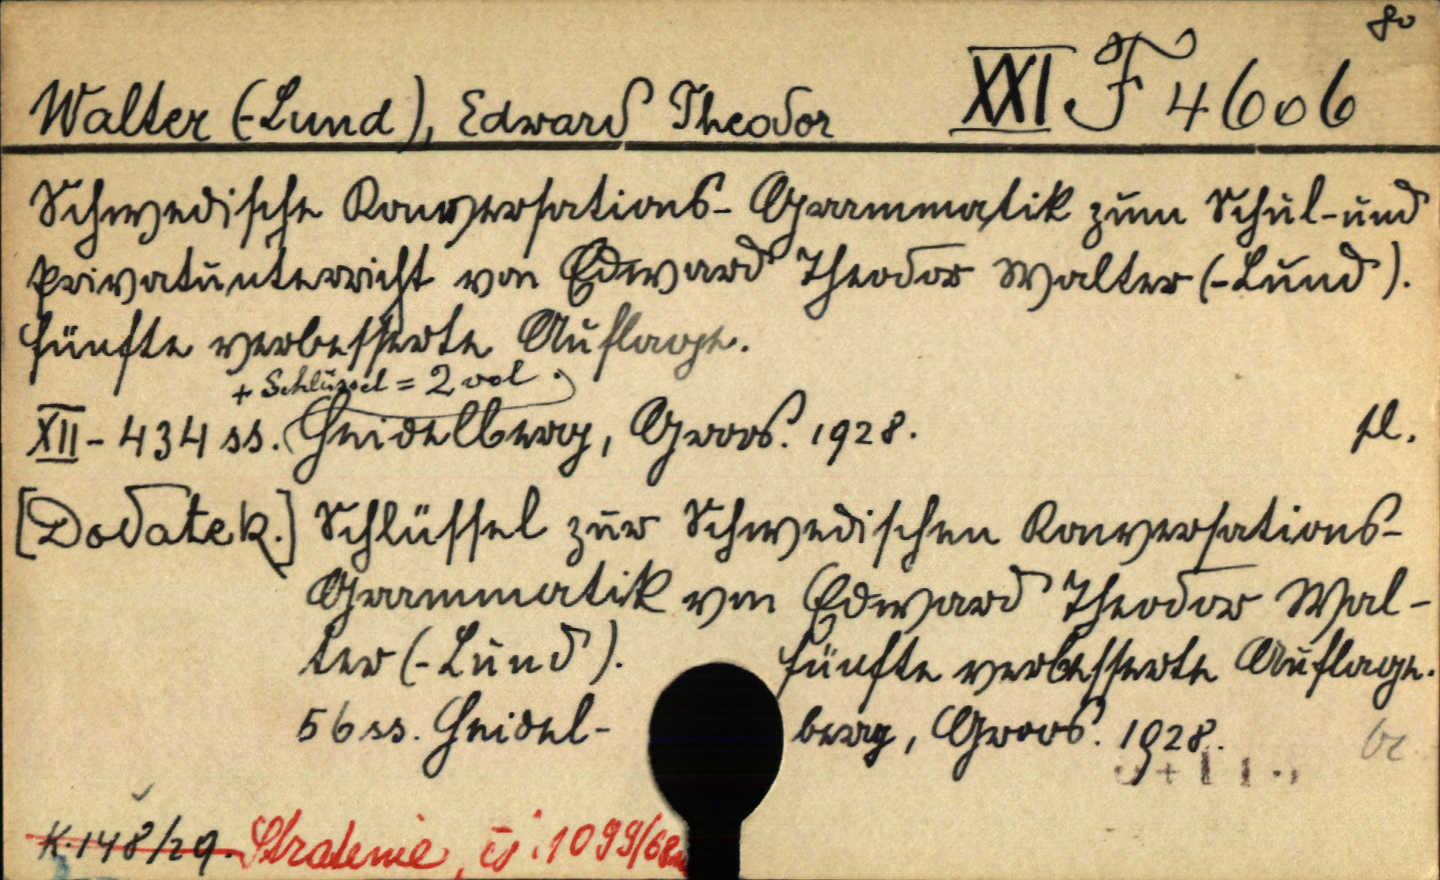 8o
Walter (-Lund), Edward Theodor XXI F 4606
Schwedische Konversations-Grammatik zum Schul- und
Privatunterricht von Edward Theodor Walter (-Lund).
Fünfte verbesserte Auflage.
+ Schlüssel = 2 vol.
XII - 434 ss. Heidelberg, Groos. 1928. pl.
[Dodatek.] Schlüssel zur Schwedischen Konversations-
Grammatik von Edward Theodor Wal-
ter (-Lund). Fünfte verbesserte Auflage.
56 ss. Heidel- berg, Groos. 1928. br.
K. 148/29. Stratenie, čj. 1099/68